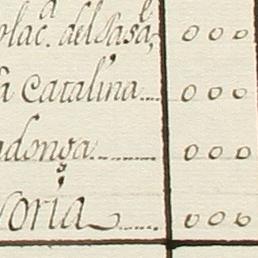 olac.ª del Pasa 000
a Catalina 000
donça 000
soria 000